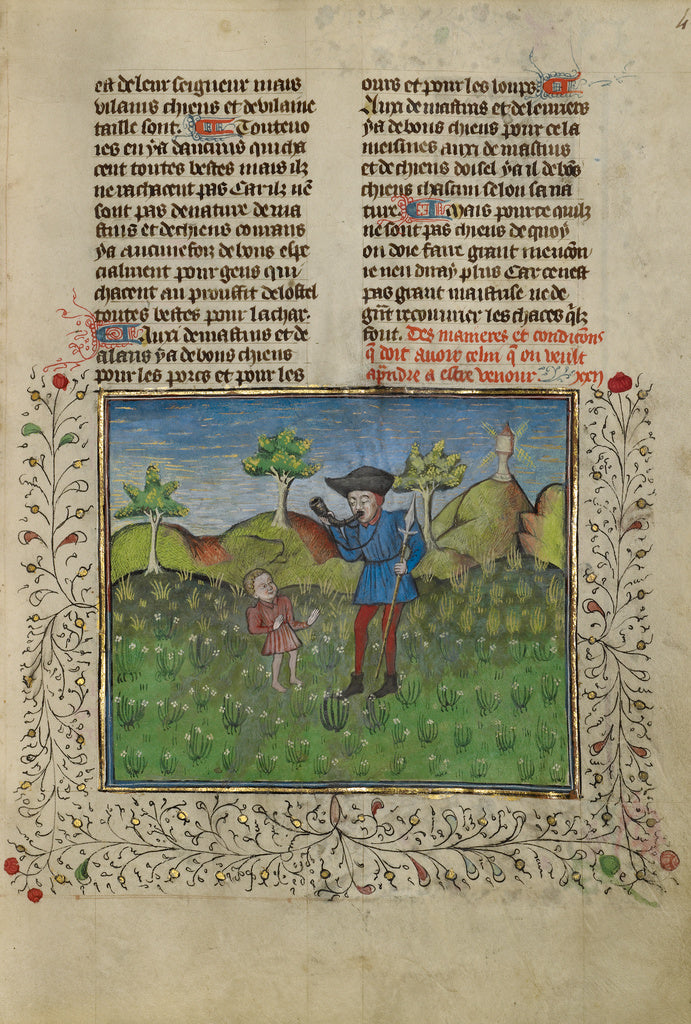 est de leur seigneur mais
vilains chiens et de vilaine
taille sont. Toutevo
ies en ya daucuns qui cha
cent toutes bestes mais ilz
ne rachacent pas Car ilz nē
sont pas de nature de ma
stins et de chiens courans
ya aucune foiz de bons espe
cialment pour gens qui
chacent au prouffit de lostel
toutes bestes pour la char.
Auxi de mastins et de
alans ya de bons chiens
pour les porcs et pour les
ours et pour les loups.
Auxi de mastins et de levriers
ya de bons chiens pour cela
meismes auxi de mastins
et de chiens doisel ya il de bōs
chiens chascun selon sa na
ture Mais pource quilz
ne sont pas chiens de quoy
on doie faire grant mencōn
ie nen diray plus Car ce nest
pas grant maistrise ne de
grāt recouvrer les chaces q̄lz
font. Des manieres et condicōns
q̄ doit avoir celui q̄ on veult
apn̄dre a estre venour xxij
4